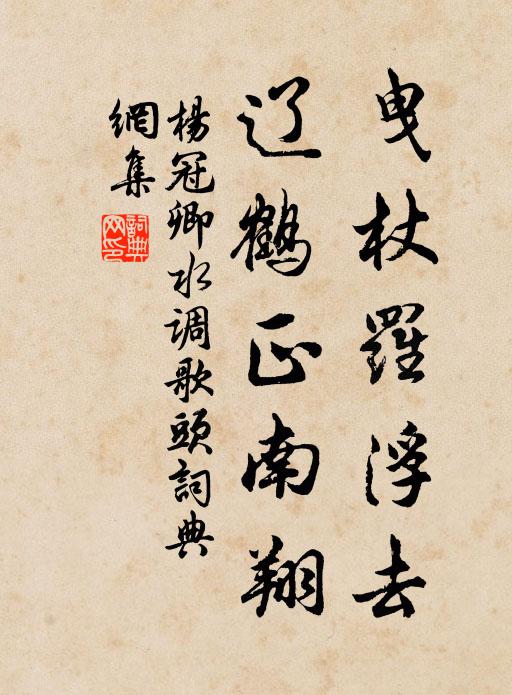 曳杖羅浮去
辽鶴正南翔
楊冠卿水调歌頭詞典
網集
詞典网印